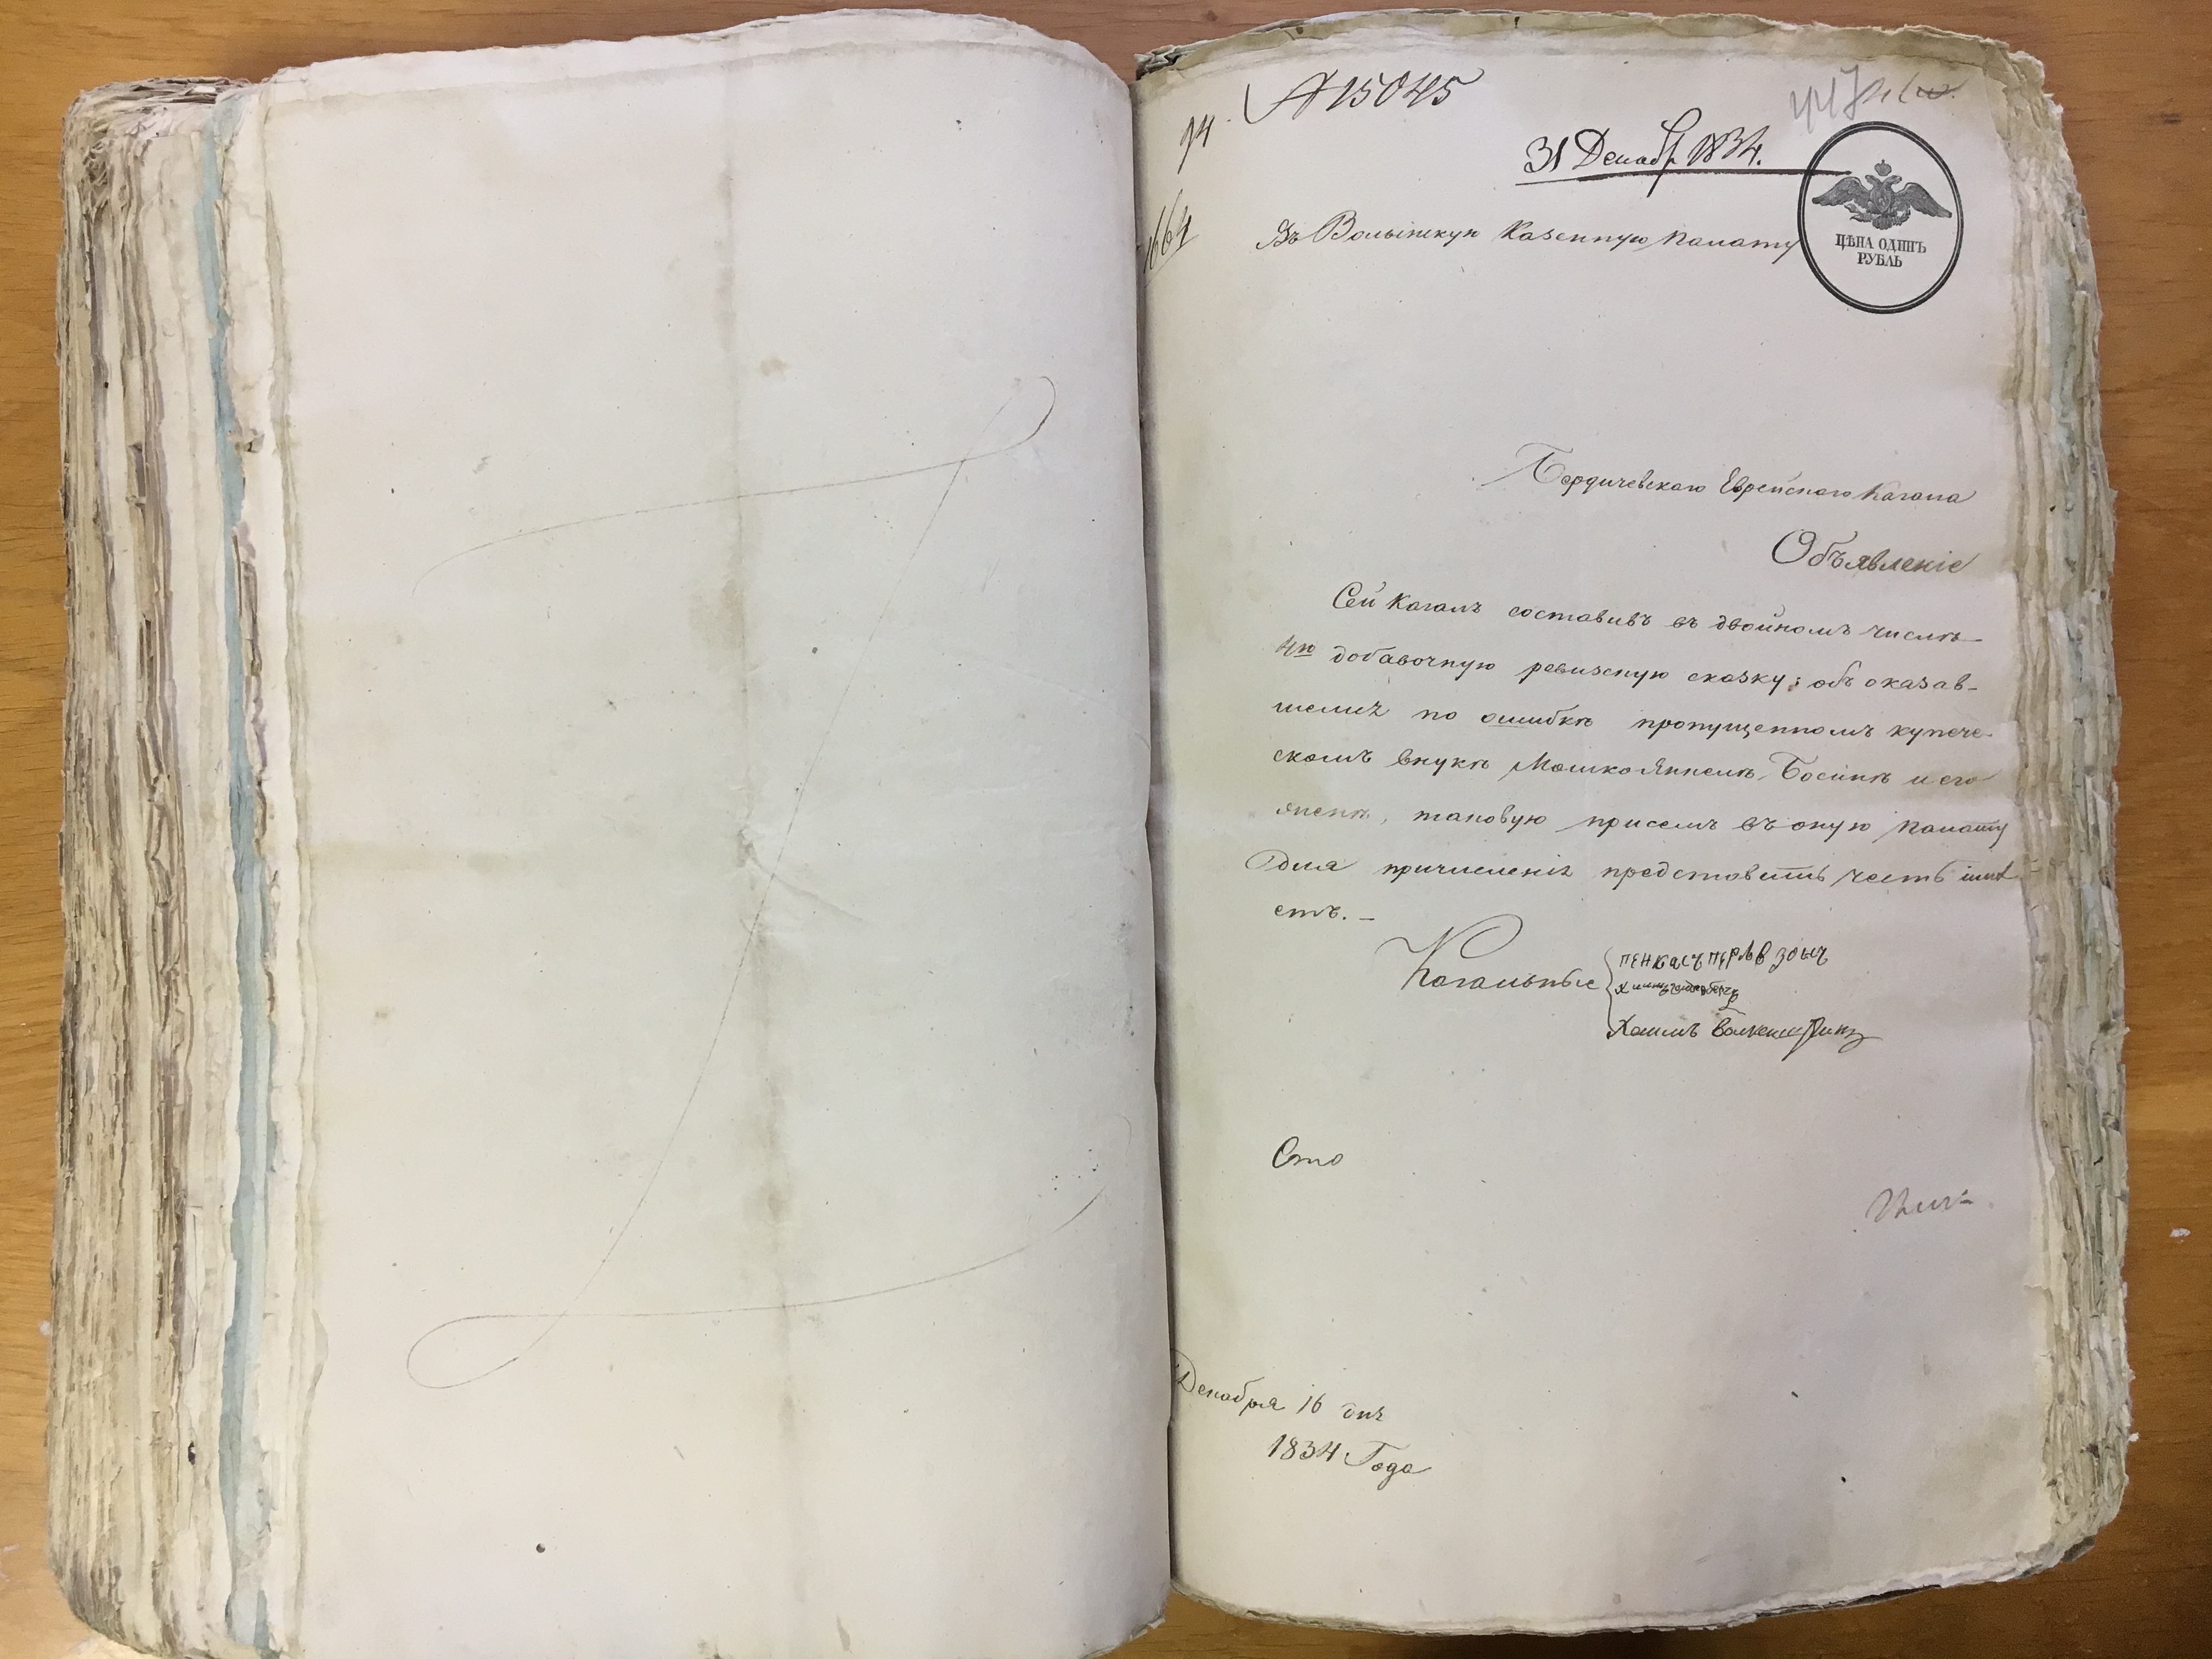 № 15045
94
1664
447
31 Декабр 1834.
ЦѢНА ОДИНЪ
РУБЛЬ
Въ Волынскую Казенную Палату
Бердичевскаго Еврейскаго Кагала
Объявленіе
Сей Кагалъ составивъ въ двойномъ числѣ
4ю добавочную ревизскую сказку; объ оказав-
шемся по ошибкѣ пропущенномъ купече-
скомъ внукѣ Мошко Янкелѣ и его
женѣ, таковую присемъ въ оную Палату
для причисленія представить честь имѣ
етъ. –
Кагальные
ПЕНКАСЪ ПЕРЛЬВЗОНЪ
Хаимъ
Сто
Декабря 16 дня
1834 Года